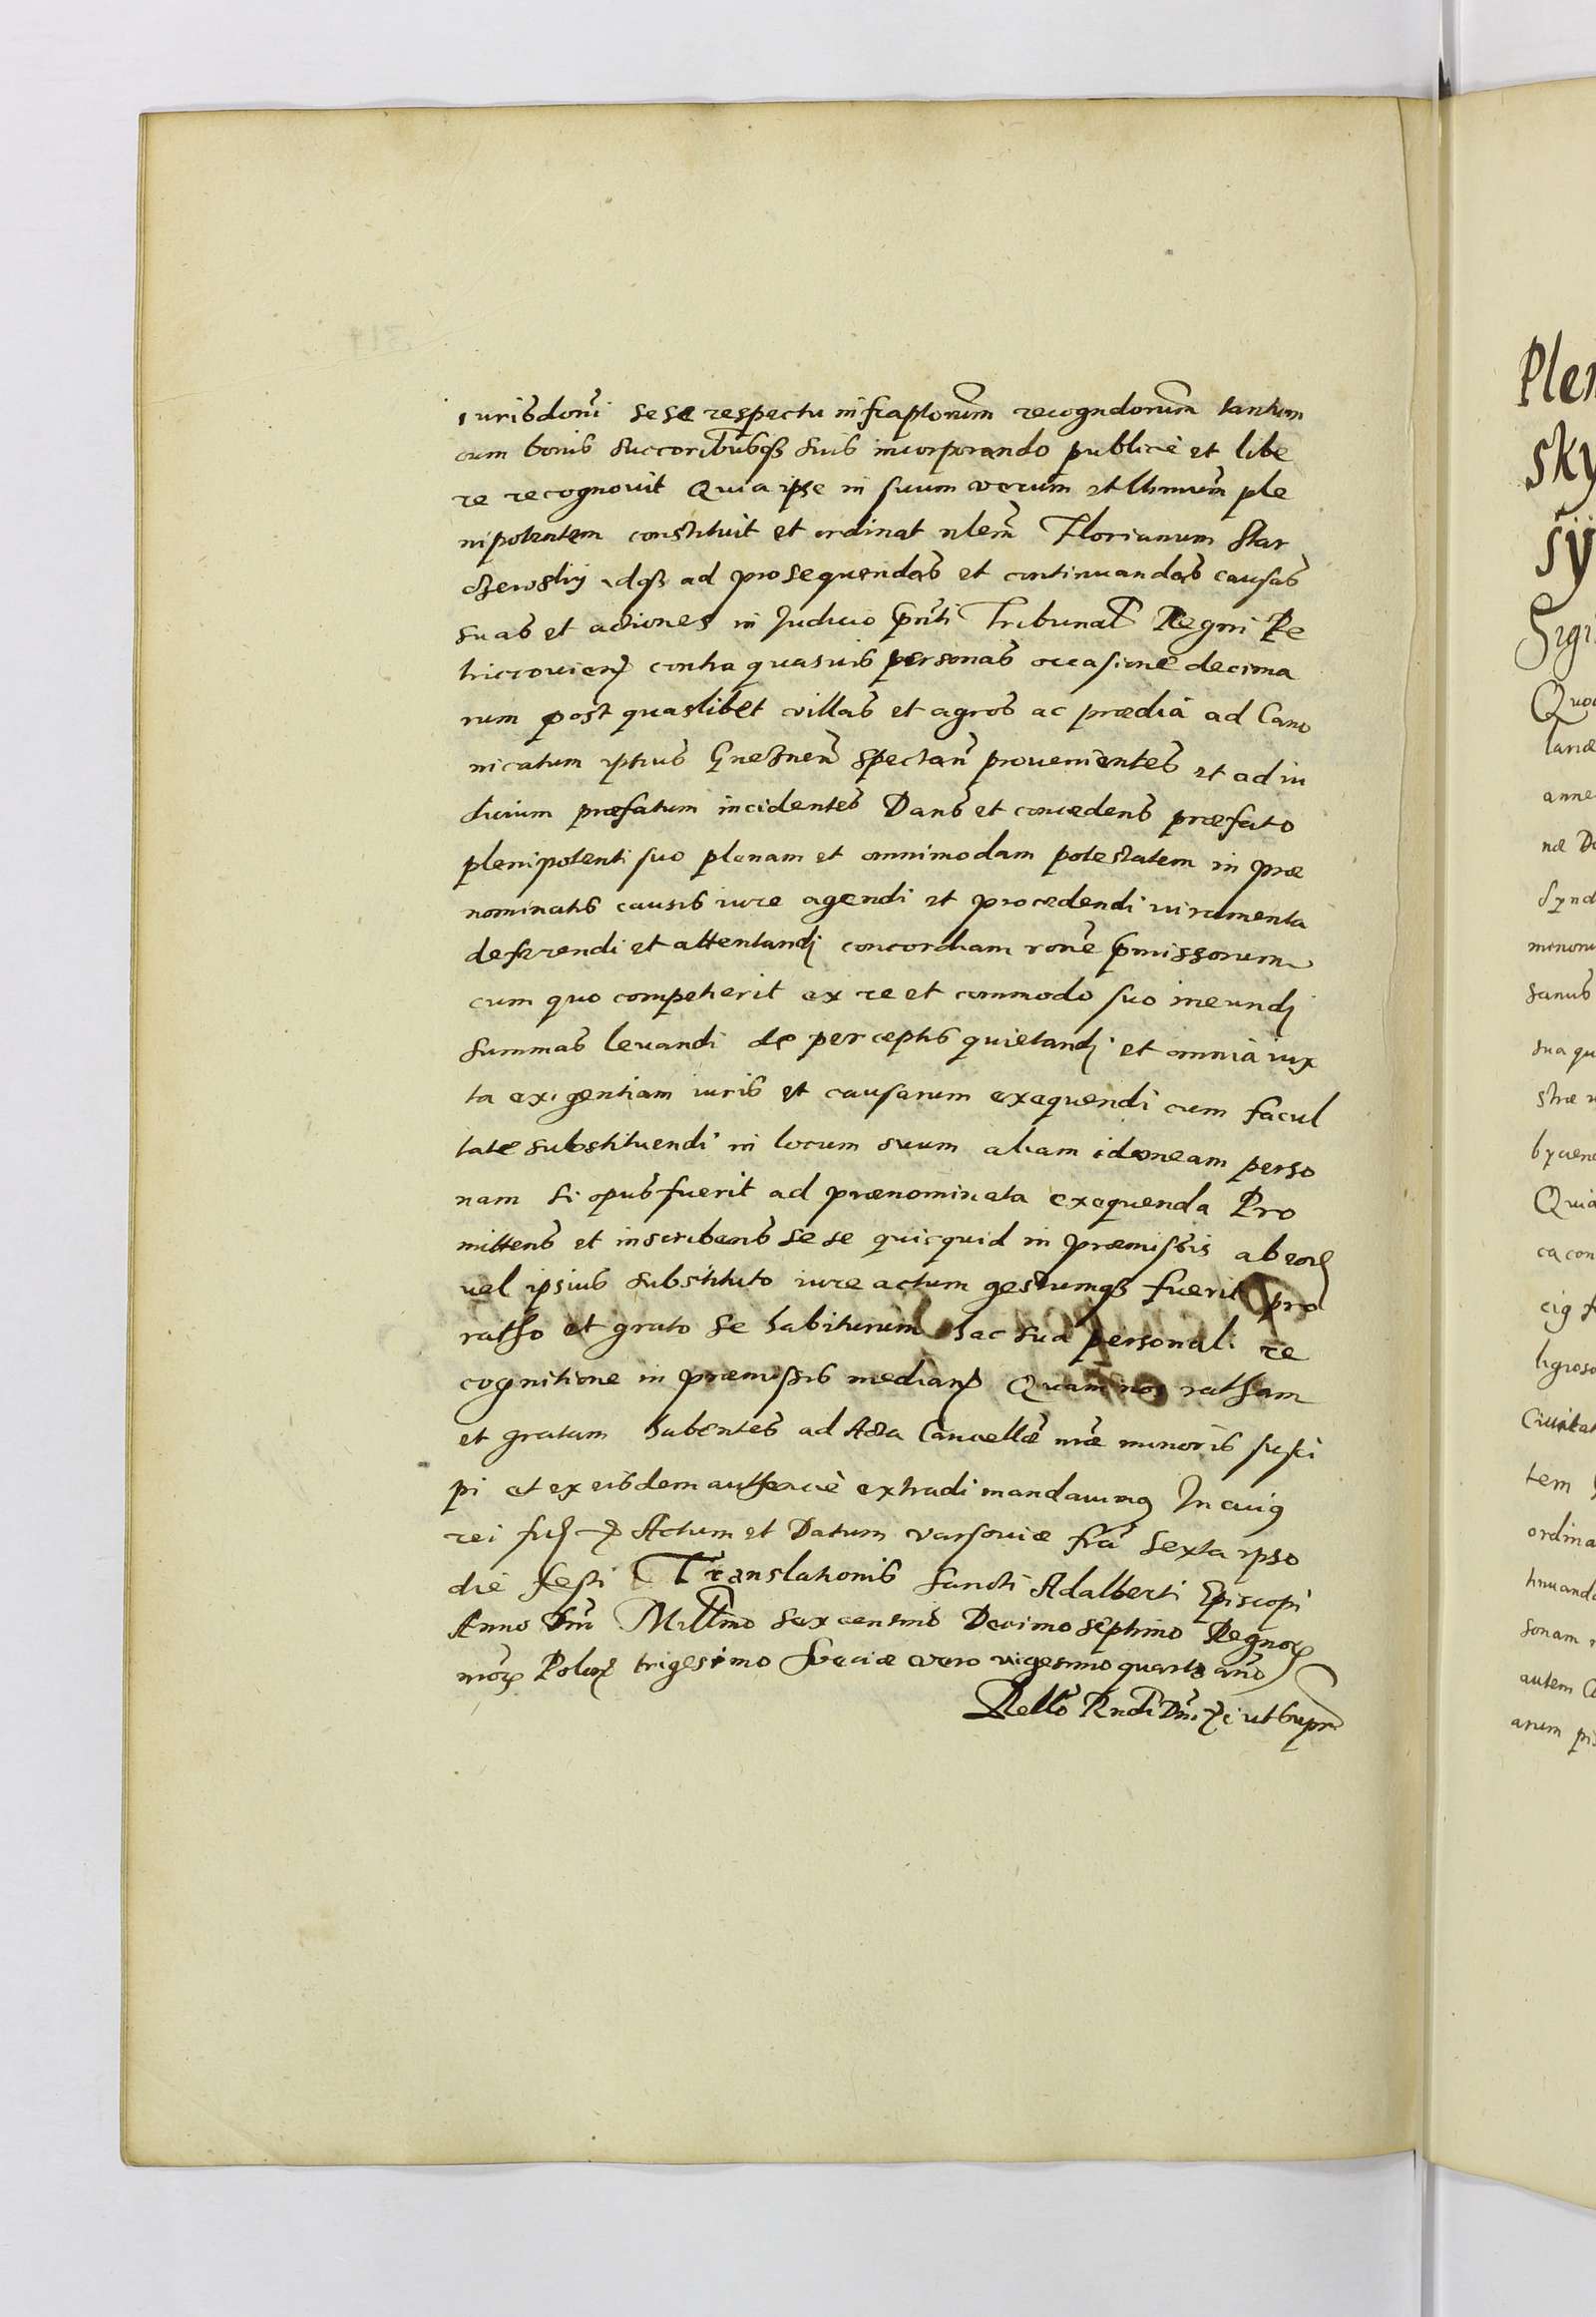 iurisdoni sese respectu infraptorum recogndorum tantum
cum bonis succoribusq suis incorporando publice et libe
re recognouit Quia ipse in suum verum et lítimum ple
nipotentem constituit et ordinat nlem Florianum Star
czewsky idq ad prosequendas et continuandas causas
suas et actiones in Judicio pnti Tribunal Regni Pe
tricouien contra quasuis personas occasione decima
rum post quaslibet villas et agros ac prædia ad Cano
nicatum ipsius Gnesnen spectan prouenientes et ad iu
dicium præfatum incidentes Dans et concedens præfato
plenipotenti suo plenam et omnimodam potestatem in præ
nominatis causis iure agendi et procedendi iuramenta
deferendi et attentandi concordiam rone pmissorum
cum quo competierit ex re et commodo suo ineundi
summas leuandi de perceptis quietandi et omnia iux
ta exigentiam iuris et causarum exequendi cum facul
tate substituendi in locum suum aliam idoneam perso
nam si opus fuerit ad prænominata exequenda Pro
mittens et inscribens sese quicquid in præmissis ab eod
uel ipsius substituto iure actum gestumq fuerit pro
ratho et grato se habiturum hac sua personali re
cognitione in præmissis median Quam nos ratham
et gratam habentes ad Acta Cancellæ nræ minoris susci
pi et ex eisdem authenticè extradi mandauimus In cuius
rei fid Actum et Datum varsouiæ fria sexta ipso
die festi Translationis Sancti Adalberti Episcopi
Anno Dni Millmo sexcentmo Decimo septimo Regnor
nror Polon trigesimo Sueciæ vero vigesimo quarto anno
Rellō Rndi Dni ut supra
Plen
sky
sy
Sigi
Quo
lariæ
anne
næ D
Synd
minoru
sanus
sua qu
stræ
Quia
ca con
ligioso
Ciuitat
tem
ordina
tinuanda
sonam
autem